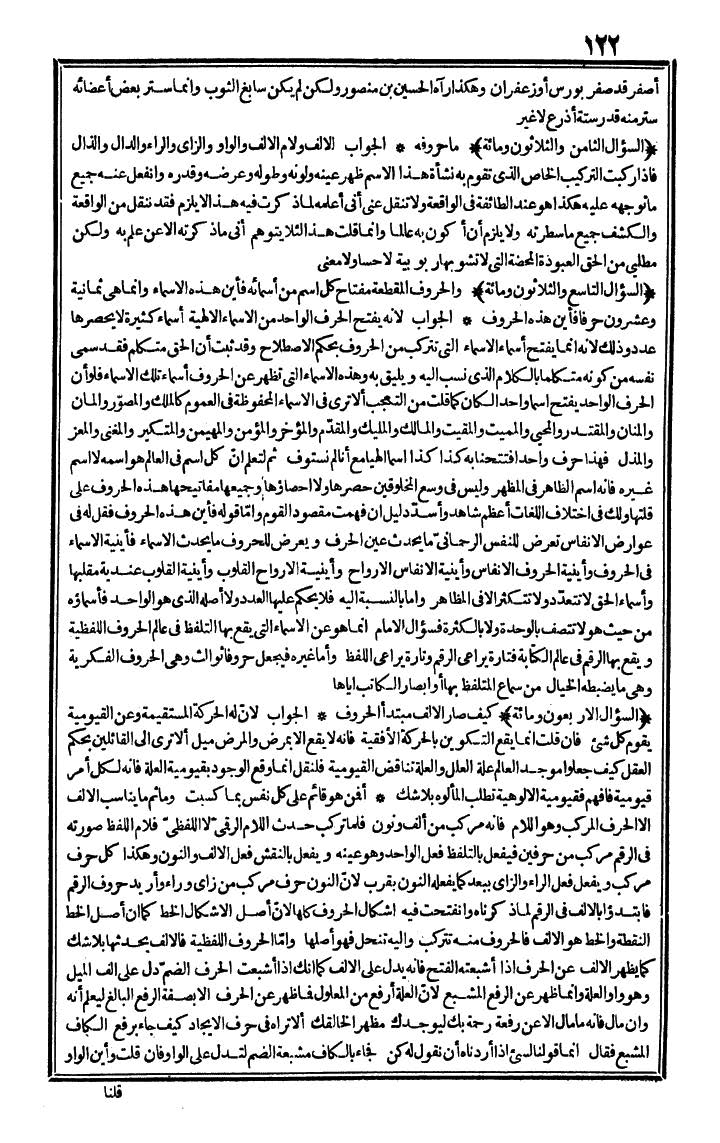 ١٢٢
أصفر قد صفر بورس أو زعفران وهكذا رآه الحسين بن منصور ولكن لم يكن سابغ الثوب وانما ستر بعض أعضائه
ستر منه قدر ستة أذرع لا غير
﴿السؤال الثامن والثلاثون ومائة﴾ ما حروفه * الجواب الالف ولام الالف والواو والزاى والراء والدال والذال
فاذا ركبت التركيب الخاص الذى تقوم به نشأة هذا الاسم ظهر عينه ولونه وطوله وعرضه وقدره وانفعل عنه جميع
ما توجهه عليه هكذا هو عند الطائفة فى الواقعة ولا تنقل عنى أنى أعلمه لما ذكرت فيه هذا لا يلزم فقد ننقل من الواقعة
والكشف جميع ما سطرته ولا يلزم أن أكون به عالما وانما قلت هذا لئلا يتوهم أنى ما ذكرته الا عن علم به ولكن
مطلبى من الحق العبودة المحضة التى لا تشوبها ربوبية لا حسا ولا معنى
﴿السؤال التاسع والثلاثون ومائة﴾ والحروف المقطعة مفتاح كل اسم من أسمائه فأين هذه الاسماء وانما هى ثمانية
وعشرون حرفا فأين هذه الحروف * الجواب لانه يفتح الحرف الواحد من الاسماء الالهية أسماء كثيرة لا يحصرها
عدد وذلك لانه انما يفتح أسماء الاسماء التى تتركب من الحروف بحكم الاصطلاح وقد ثبت أن الحق متكلم فقد سمى
نفسه من كونه متكلما بالكلام الذى نسب اليه ويليق به وهذه الاسماء التى تظهر عن الحروف أسماء تلك الاسماء فلو أن
الحرف الواحد يفتح اسما واحدا لكان كما قلت من التعجب ألا ترى فى الاسماء المحفوظة فى العموم كالملك والمصوّر والمان
والمنان والمقتدر والمحيى والمميت والمقيت والمالك والمليك والمقدّم والمؤخر والمؤمن والمهيمن والمتكبر والمغنى والمعز
والمذل فهذا حرف واحد افتتحنا به كذا كذا اسما الهيا مع أنا لم نستوف ثم لتعلم انّ كل اسم فى العالم هو اسمه لا اسم
غيره فانه اسم الظاهر فى المظهر وليس فى وسع المخلوقين حصرها ولا احصاؤها وجميعها مفاتيحها هذه الحروف على
قلتها ولك فى اختلاف اللغات أعظم شاهد وأسدّ دليل ان فهمت مقصود القوم وامّا قوله فأين هذه الحروف فقل له فى
عوارض الانفاس تعرض للنفس الرحمانىّ ما يحدث عين الحرف ويعرض للحروف ما يحدث الاسماء فأينية الاسماء
فى الحروف وأينية الحروف الانفاس وأينية الانفاس الارواح وأينية الارواح القلوب وأينية القلوب عندية مقلبها
وأسماء الحق لا تتعدّد ولا تتكثر الا فى المظاهر واما بالنسبة اليه فلا يحكم عليها العدد ولا أصله الذى هو الواحد فأسماؤه
من حيث هو لا تتصف بالوحدة ولا بالكثرة فسؤال الامام انما هو عن الاسماء التى يقع بها التلفظ فى عالم الحروف اللفظية
ويقع بها الرقم فى عالم الكتابة فتارة يراعى الرقم وتارة يراعى اللفظ وأما غيره فيجعل حروفا ثوالث وهى الحروف الفكرية
وهى ما يضبطه الخيال من سماع المتلفظ بها أو ابصار الكاتب اياها
﴿السؤال الاربعون ومائة﴾ كيف صار الالف مبتدأ الحروف * الجواب لانّ له الحركة المستقيمة وعن القيومية
يقوم كل شئ فان قلت انما يقع التكوين بالحركة الأفقية فانه لا يقع الا بمرض والمرض ميل ألا ترى الى القائلين بحكم
العقل كيف جعلوا موجد العالم علة العلل والعلة تناقض القيومية فلنقل انما وقع الوجود بقيومية العلة فانه لكل أمر
قيومية فافهم فقيومية الالوهية تطلب المألوه بلا شك * أفمن هو قائم على كل نفس بما كسبت وما ثم ما يناسب الالف
الا الحرف المركب وهو اللام فانه مركب من ألف ونون فلما تركب حدث اللام الرقمىّ لا اللفظىّ فلام اللفظ صورته
فى الرقم مركب من حرفين فيفعل بالتلفظ فعل الواحد وهو عينه ويفعل بالنقش فعل الالف والنون وهكذا كل حرف
مركب ويفعل فعل الراء والزاى ببعد كما يفعله النون بقرب لانّ النون حرف مركب من زاى وراء وأريد حروف الرقم
فابتدؤا بالالف فى الرقم لما ذكرناه وانفتحت فيه اشكال الحروف كلها لانّ أصل الاشكال الخط كما ان أصل الخط
النقطة والخط هو الالف فالحروف منه تتركب واليه تنحل فهو أصلها وامّا الحروف اللفظية فالالف يحدثها بلا شك
كما يظهر الالف عن الحرف اذا أشبعته الفتح فانه يدل على الالف كما انك اذا أشبعت الحرف الضمّ دل على الف الميل
وهو واو العلة وانما ظهر عن الرفع المشبع لانّ العلة أرفع من المعلول فما ظهر عن الحرف الا بصفة الرفع البالغ ليعلم أنه
وان مال فانه ما مال الا عن رفعة رحمة بك ليوجدك مظهرا لخالقك ألا تراه فى حرف الايجاد كيف جاء برفع الكاف
المشبع فقال انما قولنا لشئ اذا أردناه أن نقول له كن فجاء بالكاف مشبعة الضم لتدل على الواو فان قلت وأين الواو
قلنا